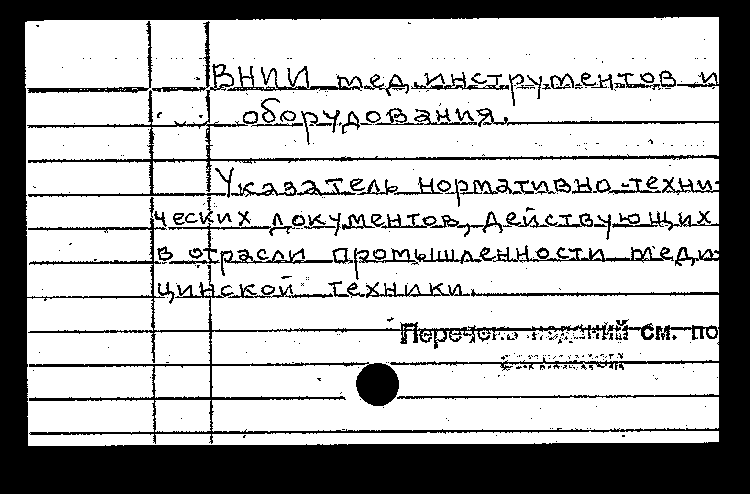 ВНИИ мед.инструментов и
оборудования.
Указатель нормативно-техни-
ческих документов, действующих
в отрасли промышленности меди-
цинской техники.
Перечень изданий см. по